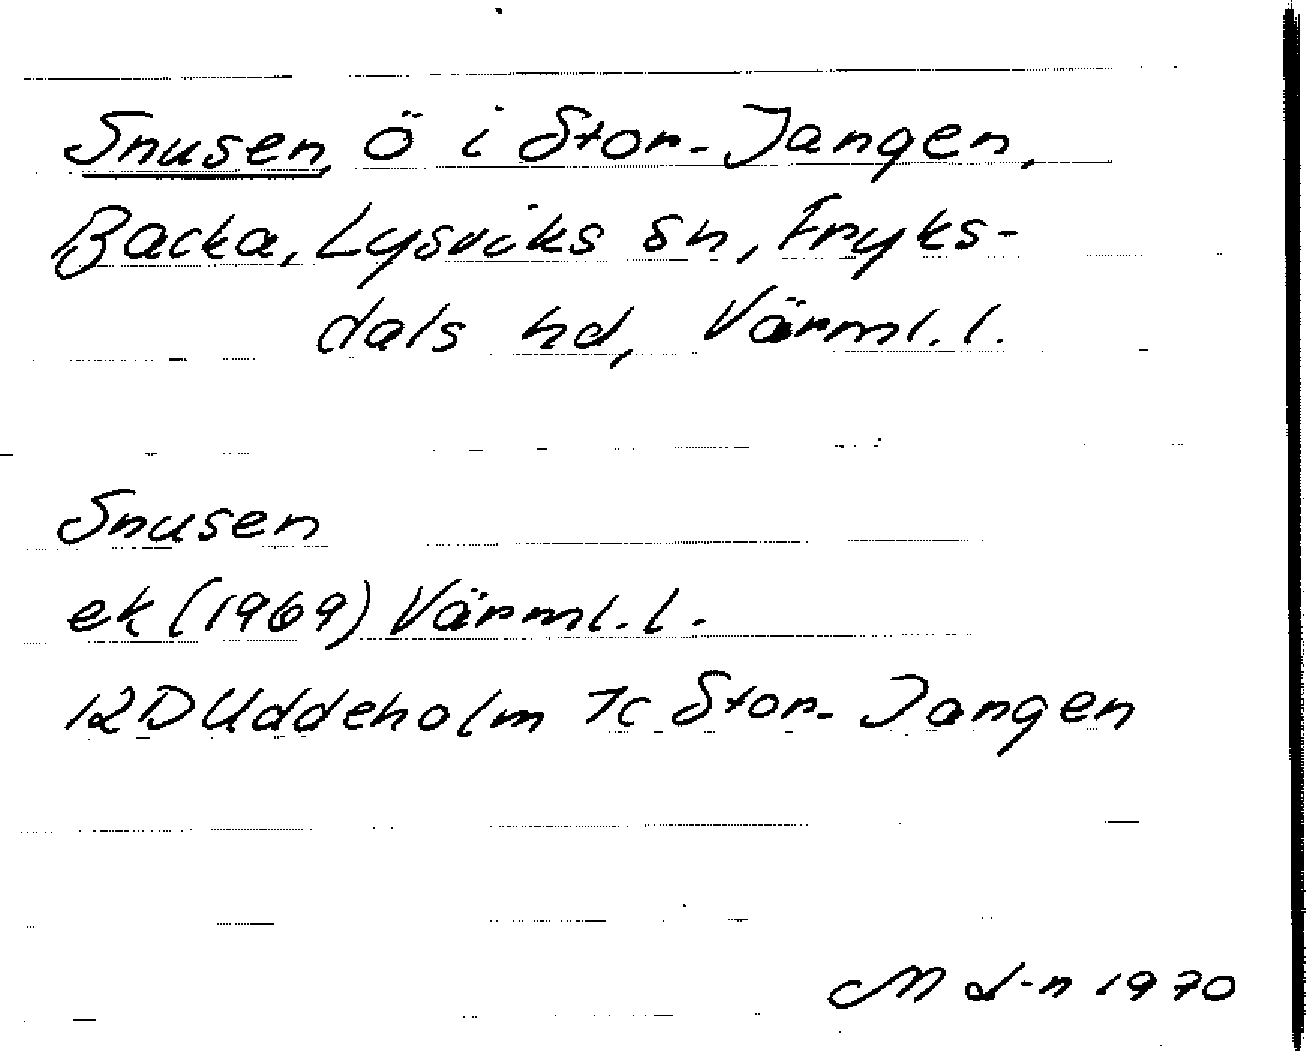 Snusen, Ö i Stor-Jangen,
Backa, Lysviks sn, Fryks-
dals hd, Värml. l.
Snusen
ek (1969) Värml. l.
12D Uddeholm 7c Stor-Jangen
1970